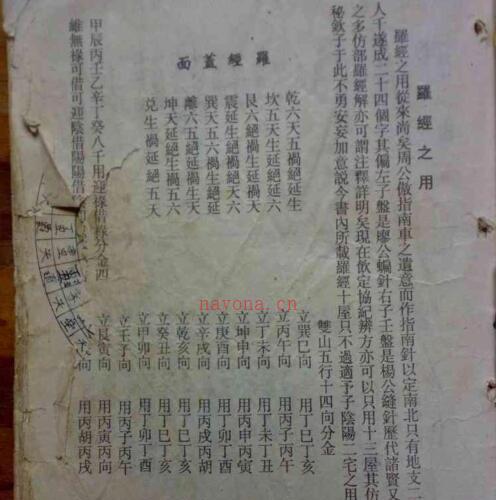 羅經之用
羅經之用從來尚矣周公倣指南車之遺意而作指南針以定南北只有地支
人千遂成二十四個字其偏左子盤是廖公蝙針右子壬盤是楊公縫針歷代諸賢又
之多仿部羅經解亦可謂注釋詳明矣現在欽定協紀辨方亦可以只用十三屋其仿
秘欽子于此不勇妄妄加意說今書內所載羅經十屋只不過適予子陰陽二宅之用
雙山五行十四向分金
羅經蓋面
乾六天五禍絕延生
坎五天生延絕禍六
艮六絕禍生延禍天
震延生禍絕五天六
巽天五六禍生絕延
離六五絕延禍生天
坤天延絕生禍五六
兌生禍延絕六五天
立巽巳向 用丁巳丁亥
立丙午向 用丙子丙午
立丁未向 用丁未丁丑
立坤申向 用丙申丙寅
立庚酉向 用丁卯丁酉
立辛戌向 用丙戌丙胡
立乾亥向 用丁巳丁亥
立癸丑向 用丁丑丁
立甲卯向 用丁卯丁酉
立壬子向 用丙子丙午
立艮寅向 用丙寅丙向
向 用丙胡丙戌
甲辰丙壬乙辛丁癸八干用迎祿借祿分金四
維無祿可借可迎陰借陽陽借
nayona.cn